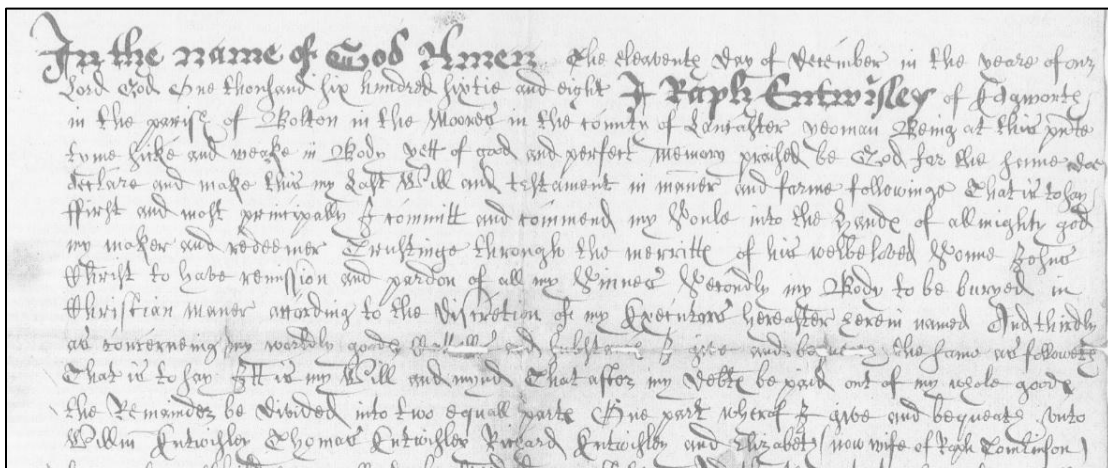 In the name of God Amen The Eleaventh Day of December in the yeare of our
Lord God One thousand six hundred sixtie and eight I Raph Entwisley of Edgworth
in the parish of Bolton in the Moores in the County of Lancaster yeoman Being at this pr'nte
tyme sicke and weake in Body yett of good and perfect memory praised be God for the same doe
declare and make this my Last Will and testament in maner and forme followinge That is to say
ffirst and most principally I committ and commend my Soule into the hands of allmighty god
my maker and redeemer Trustinge through the merritts of his welbeloved Sonne Jesus
Christ to have remission and pardon of all my Sinnes Secondly my Body to be buryed in
Christian maner according to the Discretion of my Executors hereafter herein named And thirdly
as concerneing my worldly goods and substance I give and bequeath the same as followeth
That is to say Itt is my Will and mynd That after my Debts be paid out of my whole goods
the Remainder be Divided into two equall parts One part wherof I give and bequeath unto
Willm Entwisley Thomas Entwisley Richard Entwisley and Elizabeth (now wife of Raph Tomlinson)